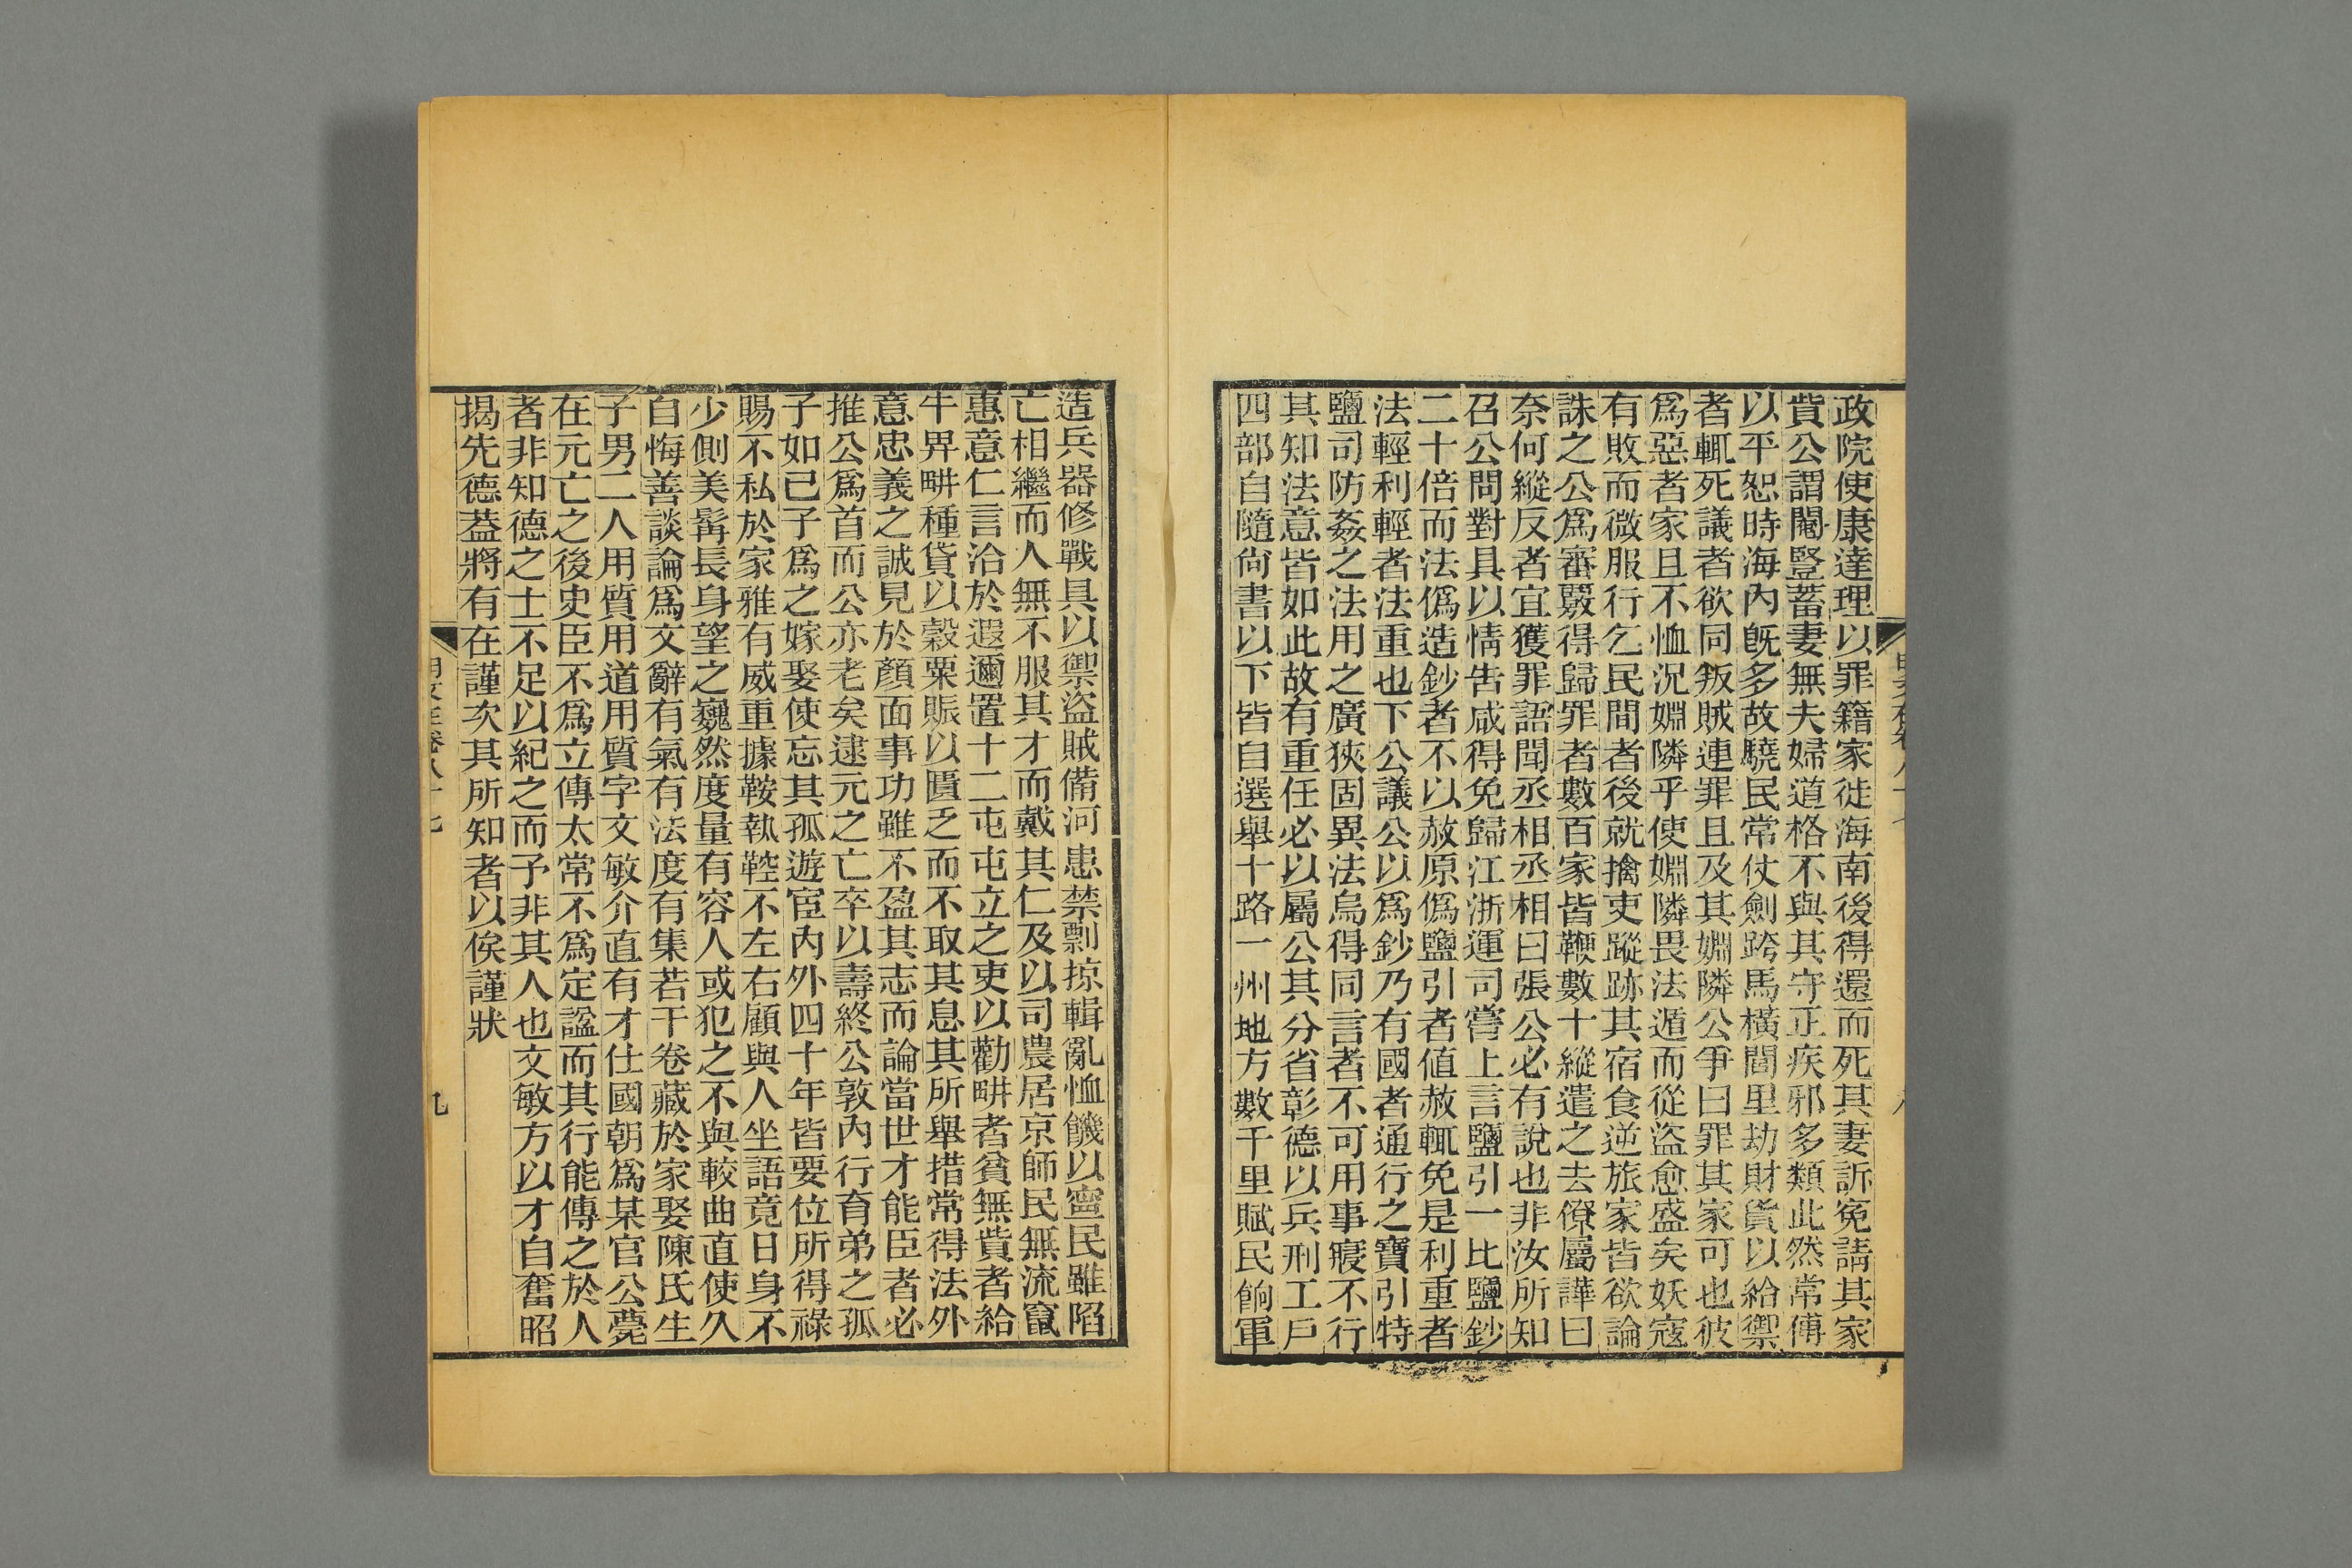 政院使康達理以罪籍家徙海南後得還而死其妻訴冤請其家
貲公謂閹豎蓄妻無夫婦道格不與其守正疾邪多類此然常傅
以平恕時海內旣多故驍民常仗劍跨馬橫閭里劫財貨以給禦
者輒死議者欲同叛賊連罪且及其婣隣公爭曰罪其家可也彼
爲惡者家且不恤況婣隣乎使婣隣畏法遁而從盜愈盛矣妖寇
有敗而微服行乞民間者後就擒吏蹤跡其宿食逆旅家皆欲論
誅之公爲審覈得歸罪者數百家皆鞭數十縱遣之去僚屬譁曰
奈何縱反者宜獲罪語聞丞相丞相曰張公必有說也非汝所知
召公問對具以情告咸得免歸江浙運司嘗上言鹽引一比鹽鈔
二十倍而法僞造鈔者不以赦原僞鹽引者值赦輒免是利重者
法輕利輕者法重也下公議公以爲鈔乃有國者通行之寶引特
鹽司防姦之法用之廣狹固異法烏得同言者不可用事寢不行
其知法意皆如此故有重任必以屬公其分省彰德以兵刑工戶
四部自隨尙書以下皆自選舉十路一州地方數千里賦民餉軍
造兵器修戰具以禦盜賊備河患禁剽掠輯亂恤饑以寧民雖陷
亡相繼而人無不服其才而戴其仁及以司農居京師民無流竄
惠意仁言洽於遐邇置十二屯屯立之吏以勸畊者貧無貲者給
牛畀畊種貸以穀粟賑以匱乏而不取其息其所舉措常得法外
意忠義之誠見於顏面事功雖不盈其志而論當世才能臣者必
推公爲首而公亦老矣逮元之亡卒以壽終公敦內行育弟之孤
子如己子爲之嫁娶使忘其孤遊宦內外四十年皆要位所得祿
賜不私於家雅有威重據鞍執鞚不左右顧與人坐語竟日身不
少側美髯長身望之巍然度量有容人或犯之不與較曲直使久
自悔善談論爲文辭有氣有法度有集若干卷藏於家娶陳氏生
子男二人用質用道用質字文敏介直有才仕國朝爲某官公薨
在元亡之後史臣不爲立傳太常不爲定諡而其行能傳之於人
者非知德之士不足以紀之而予非其人也文敏方以才自奮昭
揭先德葢將有在謹次其所知者以俟謹狀
九